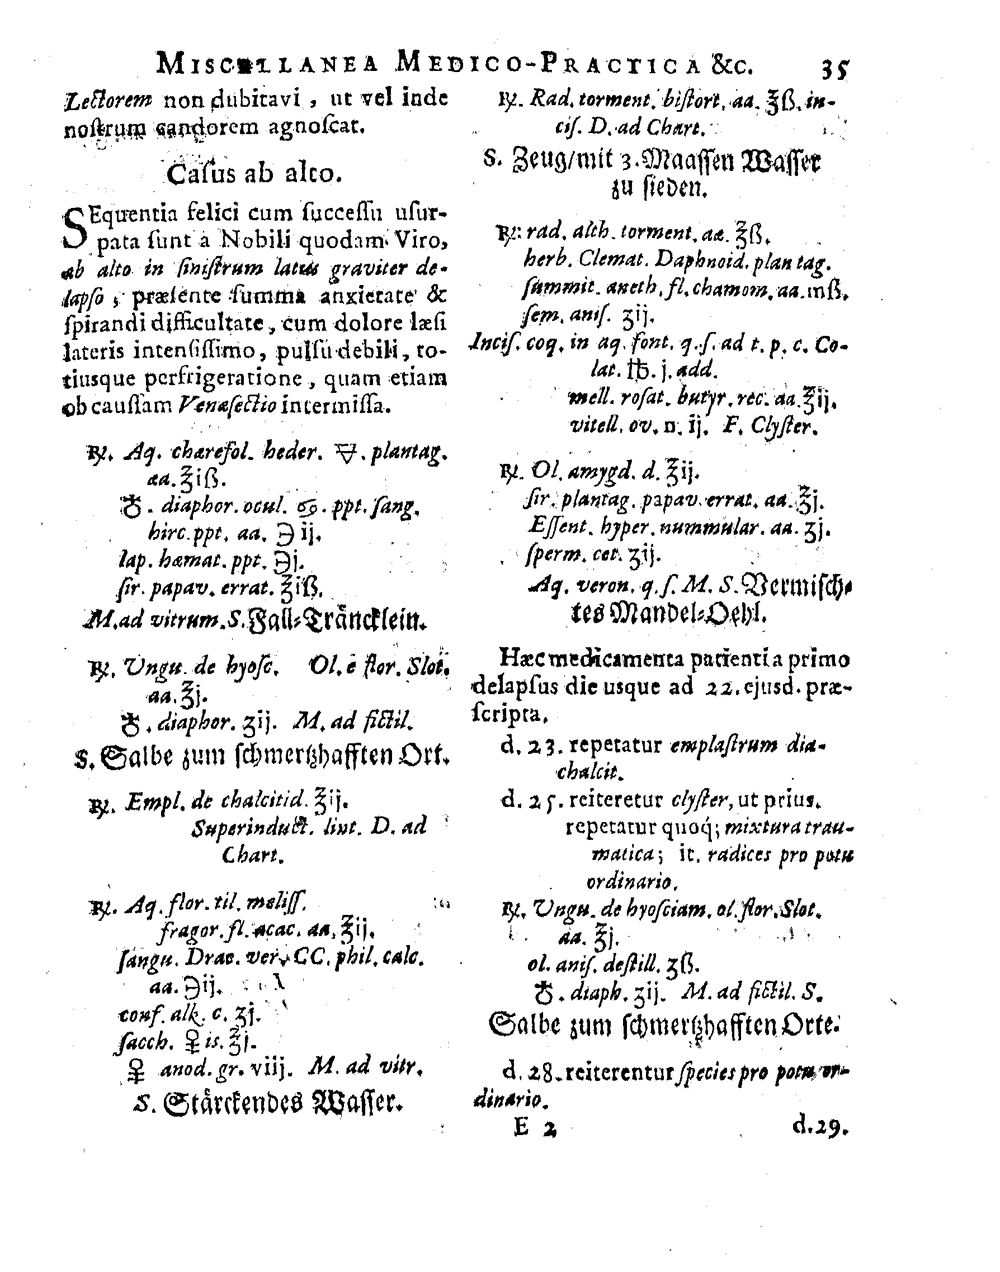 MISCELLANEA MEDICO-PRACTICA &c. 35
Lectorem non dubitavi, ut vel inde
noſtrum candorem agnoſcat.
Caſus ab alto.
SEquentia felici cum ſucceſſu uſur-
pata ſunt à Nobili quodam Viro,
ab alto in ſiniſtrum latus graviter de-
lapſo, præſente ſumma anxietate &
ſpirandi difficultate, cum dolore læſi
lateris intenſiſſimo, pulſu debili, to-
tiusque perfrigeratione, quam etiam
ob cauſſam Venæſectio intermiſſa.
℞. Aq. chærefol. heder. 🜃. plantag.
aa. ℥iß.
♁. diaphor. ocul. ♋. ppt. ſang.
hirc. ppt. aa. ℈ij.
lap. hæmat. ppt. ℈j.
ſir. papav. errat. ℥iß.
M. ad vitrum. S. Fall-Träncklein.
℞. Ungu. de hyoſc. Ol. è flor. Slot.
aa. ℥j.
♁. diaphor. ʒij. M. ad fictil.
S. Salbe zum ſchmertzhafften Ort.
℞. Empl. de chalcitid. ℥ij.
Superinduct. lint. D. ad
Chart.
℞. Aq. flor. til. meliſſ.
fragor. fl. acac. aa. ℥ij.
ſangu. Drac. ver. CC. phil. calc.
aa. ℈ij.
conf. alk. c. ʒj.
ſacch. ♀is. ℥j.
♀ anod. gr. viij. M. ad vitr.
S. Stärckendes Waſſer.
℞. Rad. torment. biſtort. aa. ℥ß. in-
ciſ. D. ad Chart.
S. Zeug/mit 3. Maaſſen Waſſer
zu ſieden.
℞. rad. alth. torment. aa. ℥ß.
herb. Clemat. Daphnoid. plantag.
ſummit. aneth. fl. chamom. aa. mß.
ſem. aniſ. ʒij.
Inciſ. coq. in aq. font. q. ſ. ad t. p. c. Co-
lat. ℔. j. add.
mell. roſat. butyr. rec. aa. ℥ij.
vitell. ov. n. ij. F. Clyſter.
℞. Ol. amygd. d. ℥ij.
ſir. plantag. papav. errat. aa. ℥j.
Eſſent. hyper. nummular. aa. ʒj.
ſperm. cet. ʒij.
Aq. veron. q. ſ. M. S. Vermiſch-
tes Mandel-Oehl.
Hæc medicamenta patienti a primo
delapſus die usque ad 22. ejusd. præ-
ſcripta.
d. 23. repetatur emplaſtrum dia-
chalcit.
d. 25. reiteretur clyſter, ut prius.
repetatur quoq́; mixtura trau-
matica; it. radices pro potu
ordinario.
℞. Ungu. de hyoſciam. ol. flor. Slot.
aa. ℥j.
ol. aniſ. deſtill. ʒß.
♁. diaph. ʒij. M. ad fictil. S.
Salbe zum ſchmertzhafften Orte.
d. 28. reiterentur ſpecies pro potu or-
dinario.
E 2 d. 29.